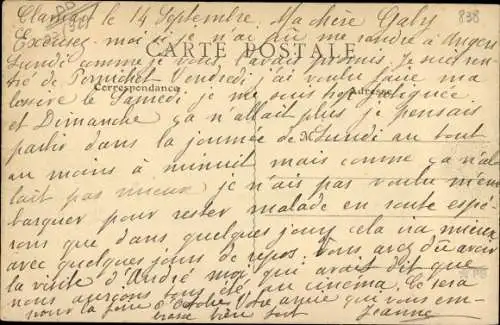 Clamart le 14 Septembre. Ma chère Gaby
838
Excusez-moi si je n'ai pu me rendre à Angers
CARTE POSTALE
Lundi comme je vous l'avais promis. Je suis ren-
tré de Pornichet Vendredi j'ai voulu faire ma
Correspondance
Adresse
lessive le Samedi je me suis trop fatiguée
et Dimanche ça n'allait plus je pensais
partir dans la journée de Lundi au tout
au moins à minuit mais comme ça n'al
lait pas mieux je n'ais pas voulu m'em
barquer pour rester malade en route espé
rons que dans quelques jours cela ira mieux
avec quelques jours de repos. Vous avez dû avoir
la visite d'André moi qui avait dit que
nous aurions tous été au cinéma. Ce sera
pour la foire d'Octobre Votre amie que vous em-
brasse bien fort
Jeanne